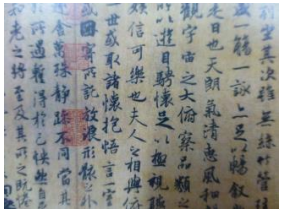 列坐其次雖無絲竹管
盛一觴一詠亦足以暢敘
是日也天朗氣清惠風和
觀宇宙之大俯察品類之
所以遊目騁懷足以極視聽
娛信可樂也夫人之相與俯
一世或取諸懷抱悟言一室
或因寄所託放浪形骸之外
趣舍萬殊靜躁不同當其
於所遇暫得於己怏然自
知老之將至及其所之既惓